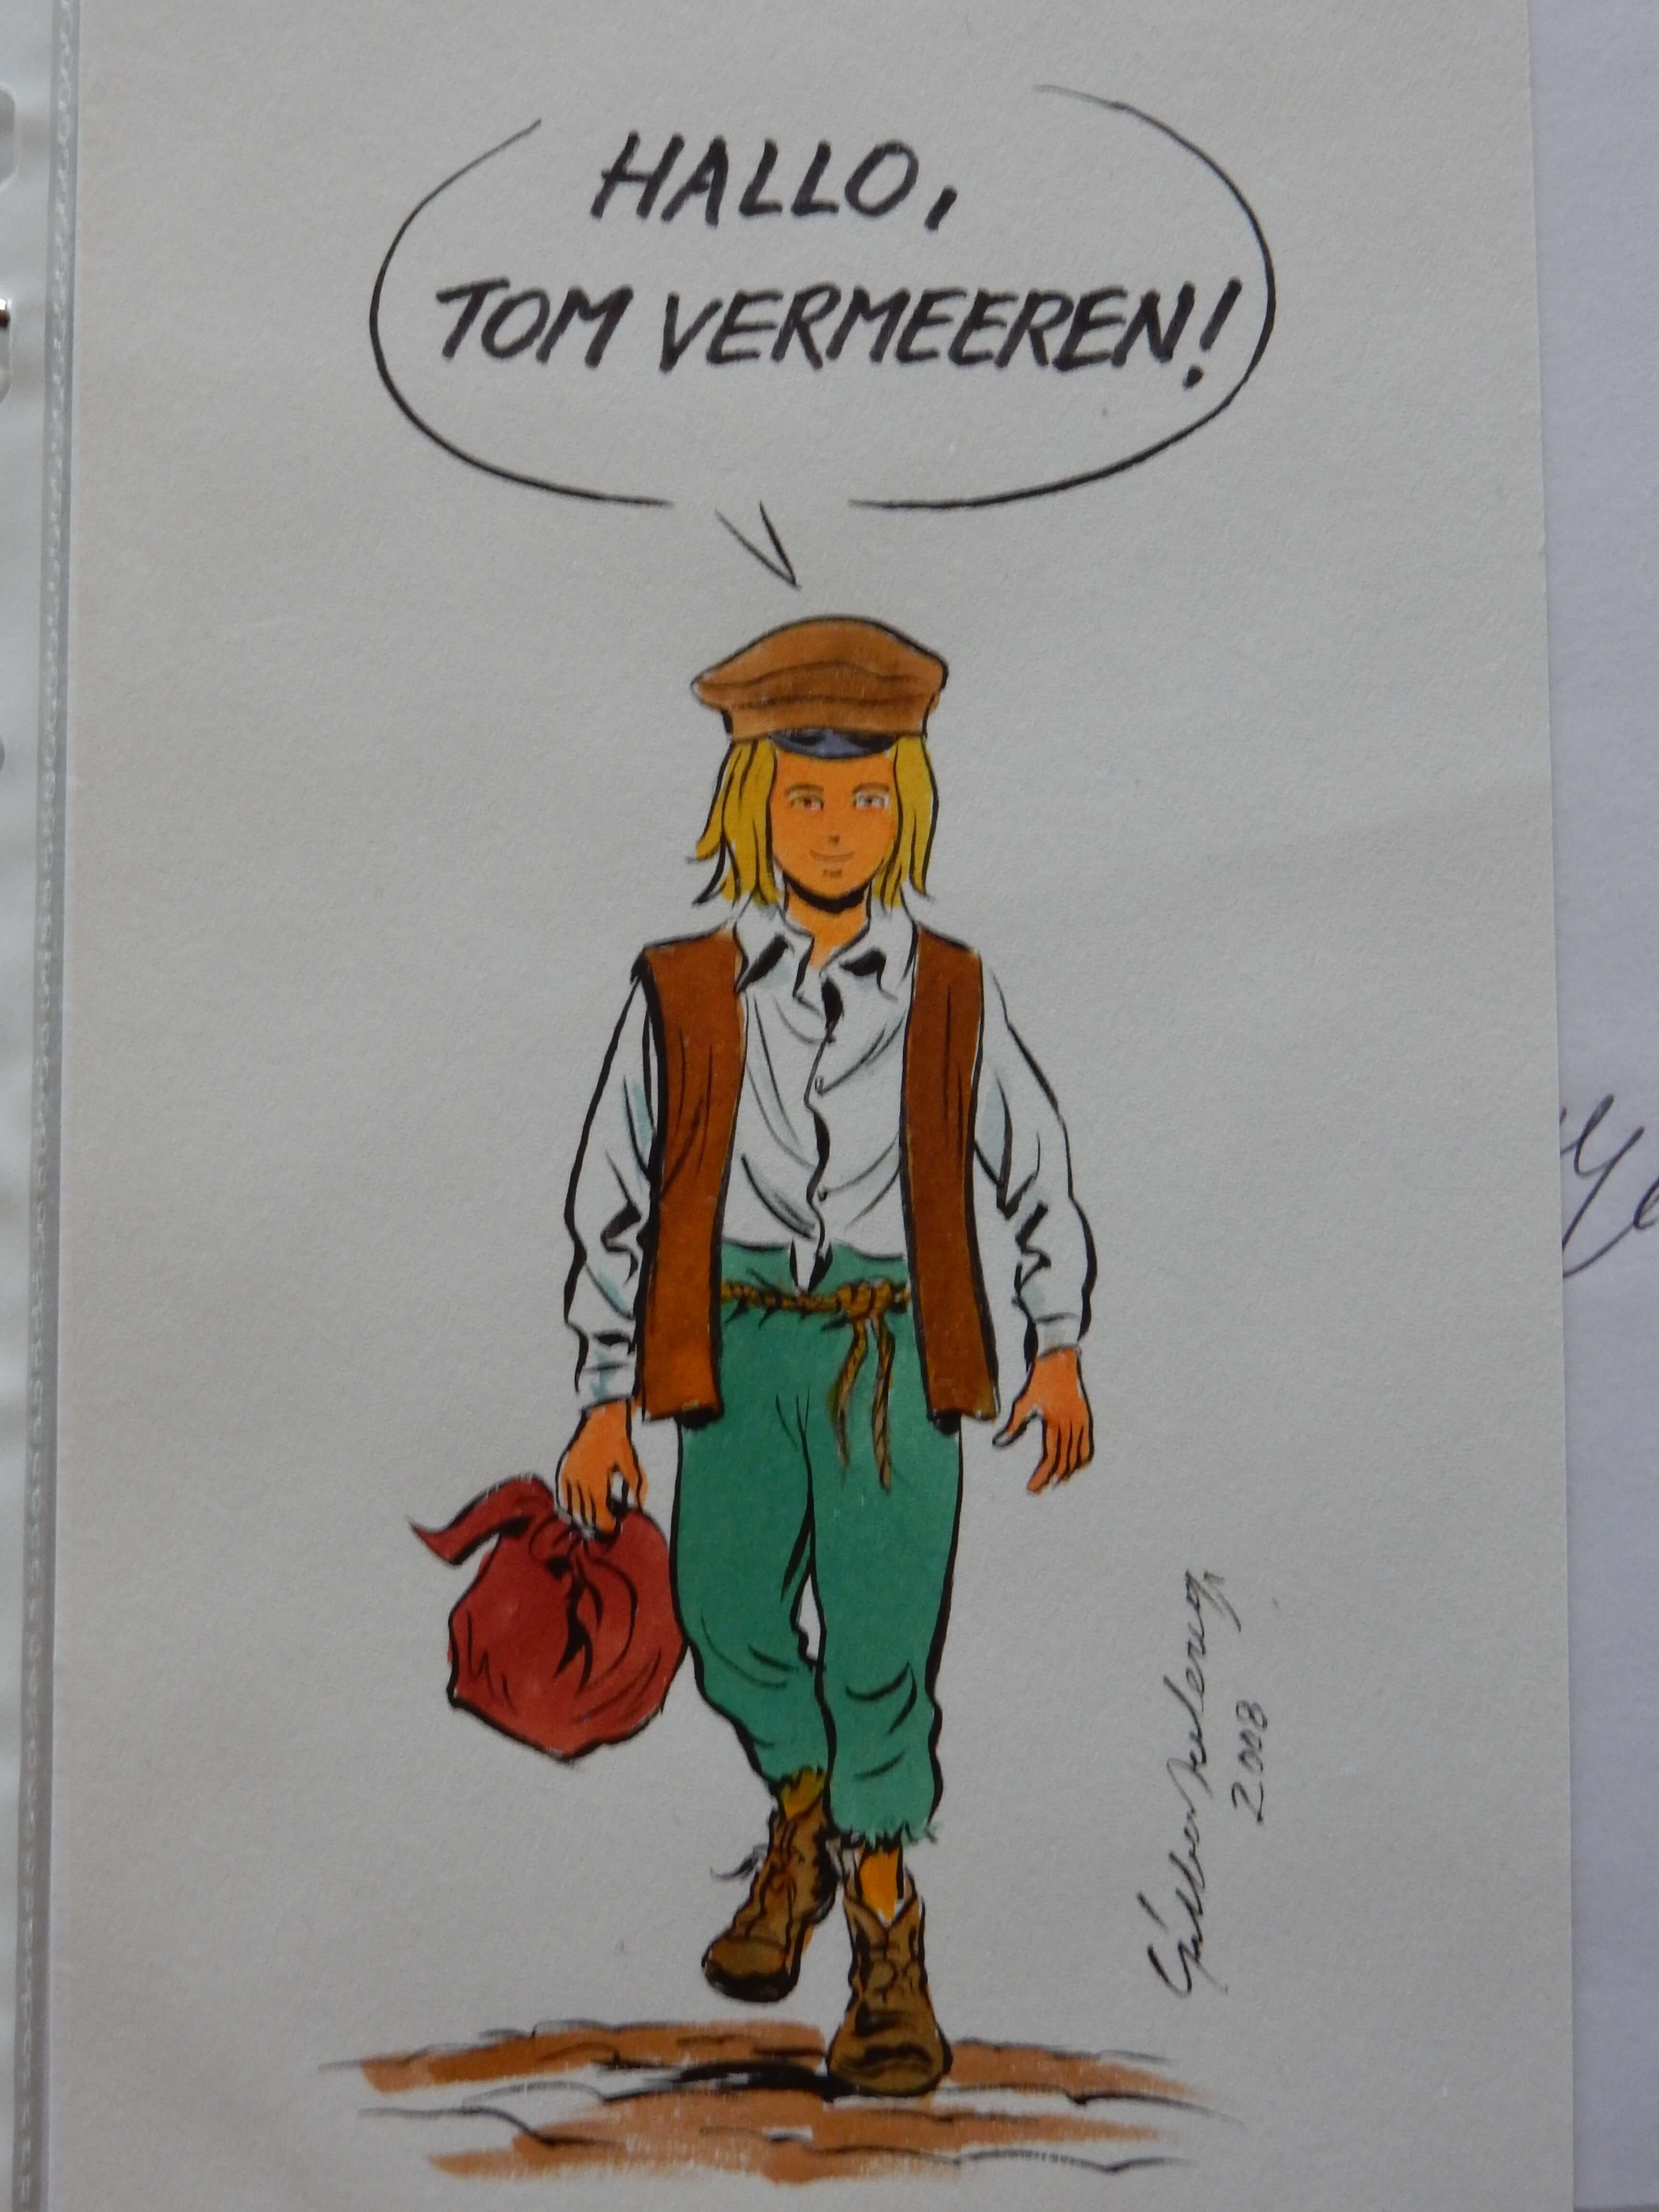 HALLO,
TOM VERMEEREN!
2008